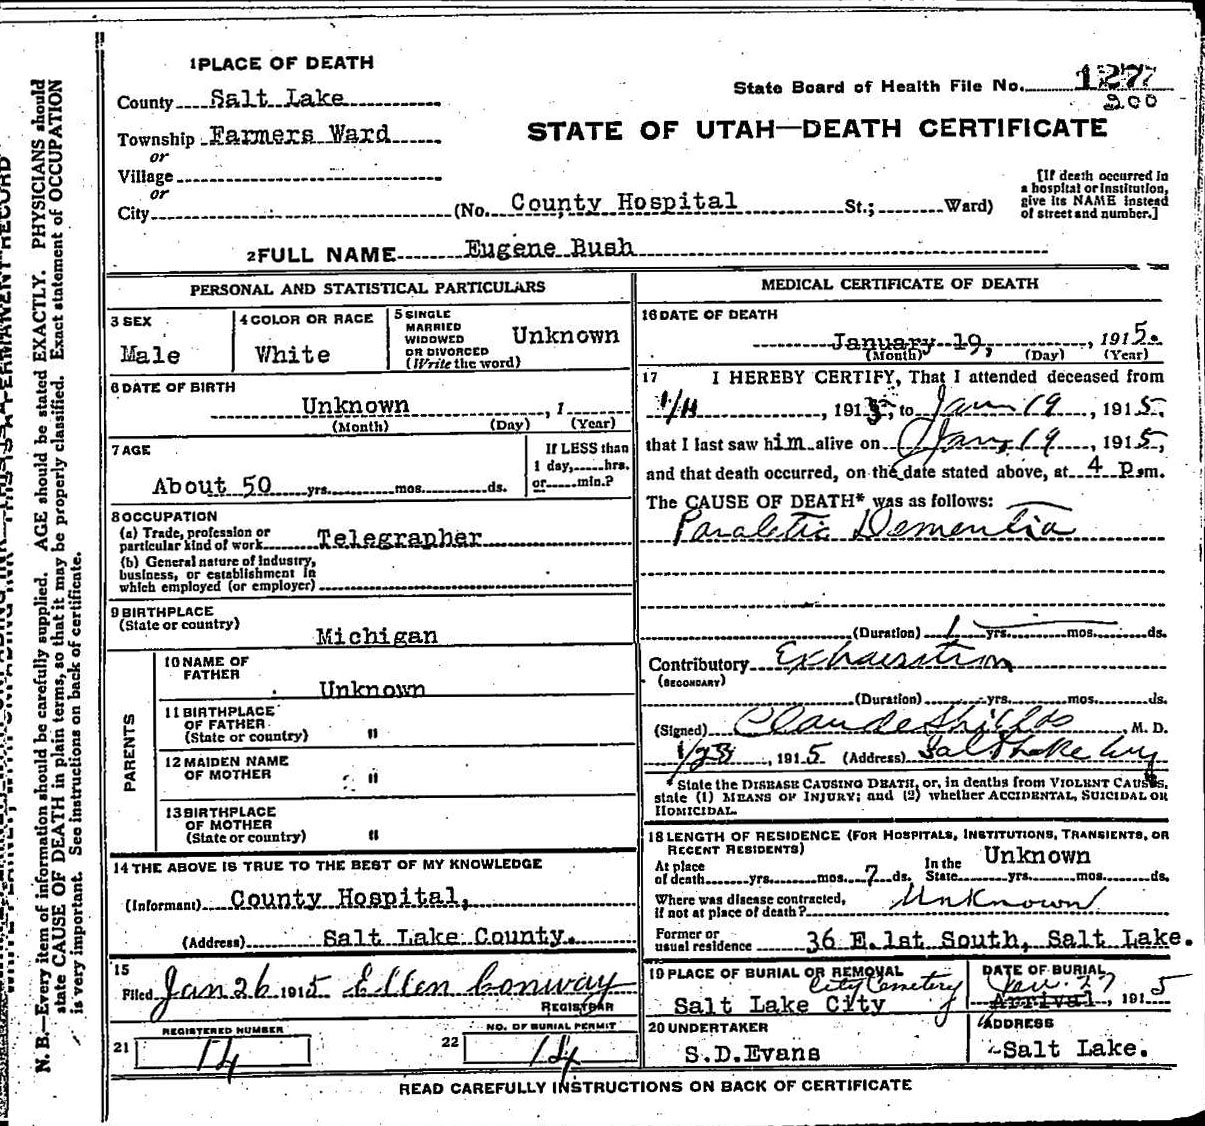 1 PLACE OF DEATH
County Salt Lake
Township Farmers Ward
or
Village
or
City (No. County Hospital St.; Ward)
State Board of Health File No. 127
200
STATE OF UTAH—DEATH CERTIFICATE
[If death occurred in
a hospital or institution,
give its NAME instead
of street and number.]
2 FULL NAME Eugene Bush
PERSONAL AND STATISTICAL PARTICULARS
3 SEX
Male
4 COLOR OR RACE
White
5 SINGLE
MARRIED
WIDOWED
OR DIVORCED
(Write the word)
Unknown
6 DATE OF BIRTH
Unknown , 1
(Month) (Day) (Year)
7 AGE
About 50 yrs. mos. ds.
If LESS than
1 day, hrs.
or min.?
8 OCCUPATION
(a) Trade, profession or
particular kind of work Telegrapher
(b) General nature of industry,
business, or establishment in
which employed (or employer)
9 BIRTHPLACE
(State or country)
Michigan
PARENTS
10 NAME OF
FATHER
Unknown
11 BIRTHPLACE
OF FATHER
(State or country) "
12 MAIDEN NAME
OF MOTHER "
13 BIRTHPLACE
OF MOTHER
(State or country) "
14 THE ABOVE IS TRUE TO THE BEST OF MY KNOWLEDGE
(Informant) County Hospital,
(Address) Salt Lake County.
15
Filed Jan 26 1915 Ellen Conway
REGISTRAR
REGISTERED NUMBER
21 14
NO. OF BURIAL PERMIT
22 14
MEDICAL CERTIFICATE OF DEATH
16 DATE OF DEATH
January 19, , 1915.
(Month) (Day) (Year)
17 I HEREBY CERTIFY, That I attended deceased from
1/11 , 1915, to Jan 19 , 1915,
that I last saw him alive on Jan, 19 , 1915,
and that death occurred, on the date stated above, at 4 p.m.
The CAUSE OF DEATH* was as follows:
Paraletic Dementia
(Duration) 1 yrs. mos. ds.
Contributory Exhaustion
(SECONDARY)
(Duration) yrs. mos. ds.
(Signed) Claude Shields , M. D.
1/23 , 1915 (Address) Salt Lake City
* State the DISEASE CAUSING DEATH, or, in deaths from VIOLENT CAUSES,
state (1) MEANS OF INJURY; and (2) whether ACCIDENTAL, SUICIDAL OR
HOMICIDAL.
18 LENGTH OF RESIDENCE (FOR HOSPITALS, INSTITUTIONS, TRANSIENTS, OR
RECENT RESIDENTS)
At place
of death yrs. mos. 7 ds.
In the
State yrs. mos. ds.
Unknown
Where was disease contracted,
if not at place of death? Unknown
Former or
usual residence 36 E. 1st South, Salt Lake.
19 PLACE OF BURIAL OR REMOVAL
City Cemetery
Salt Lake City
DATE OF BURIAL
Jan. 27
Arrival , 1915
20 UNDERTAKER
S.D.Evans
ADDRESS
Salt Lake.
READ CAREFULLY INSTRUCTIONS ON BACK OF CERTIFICATE
N. B.—Every item of information should be carefully supplied. AGE should be stated EXACTLY. PHYSICIANS should
state CAUSE OF DEATH in plain terms, so that it may be properly classified. Exact statement of OCCUPATION
is very important. See instructions on back of certificate.